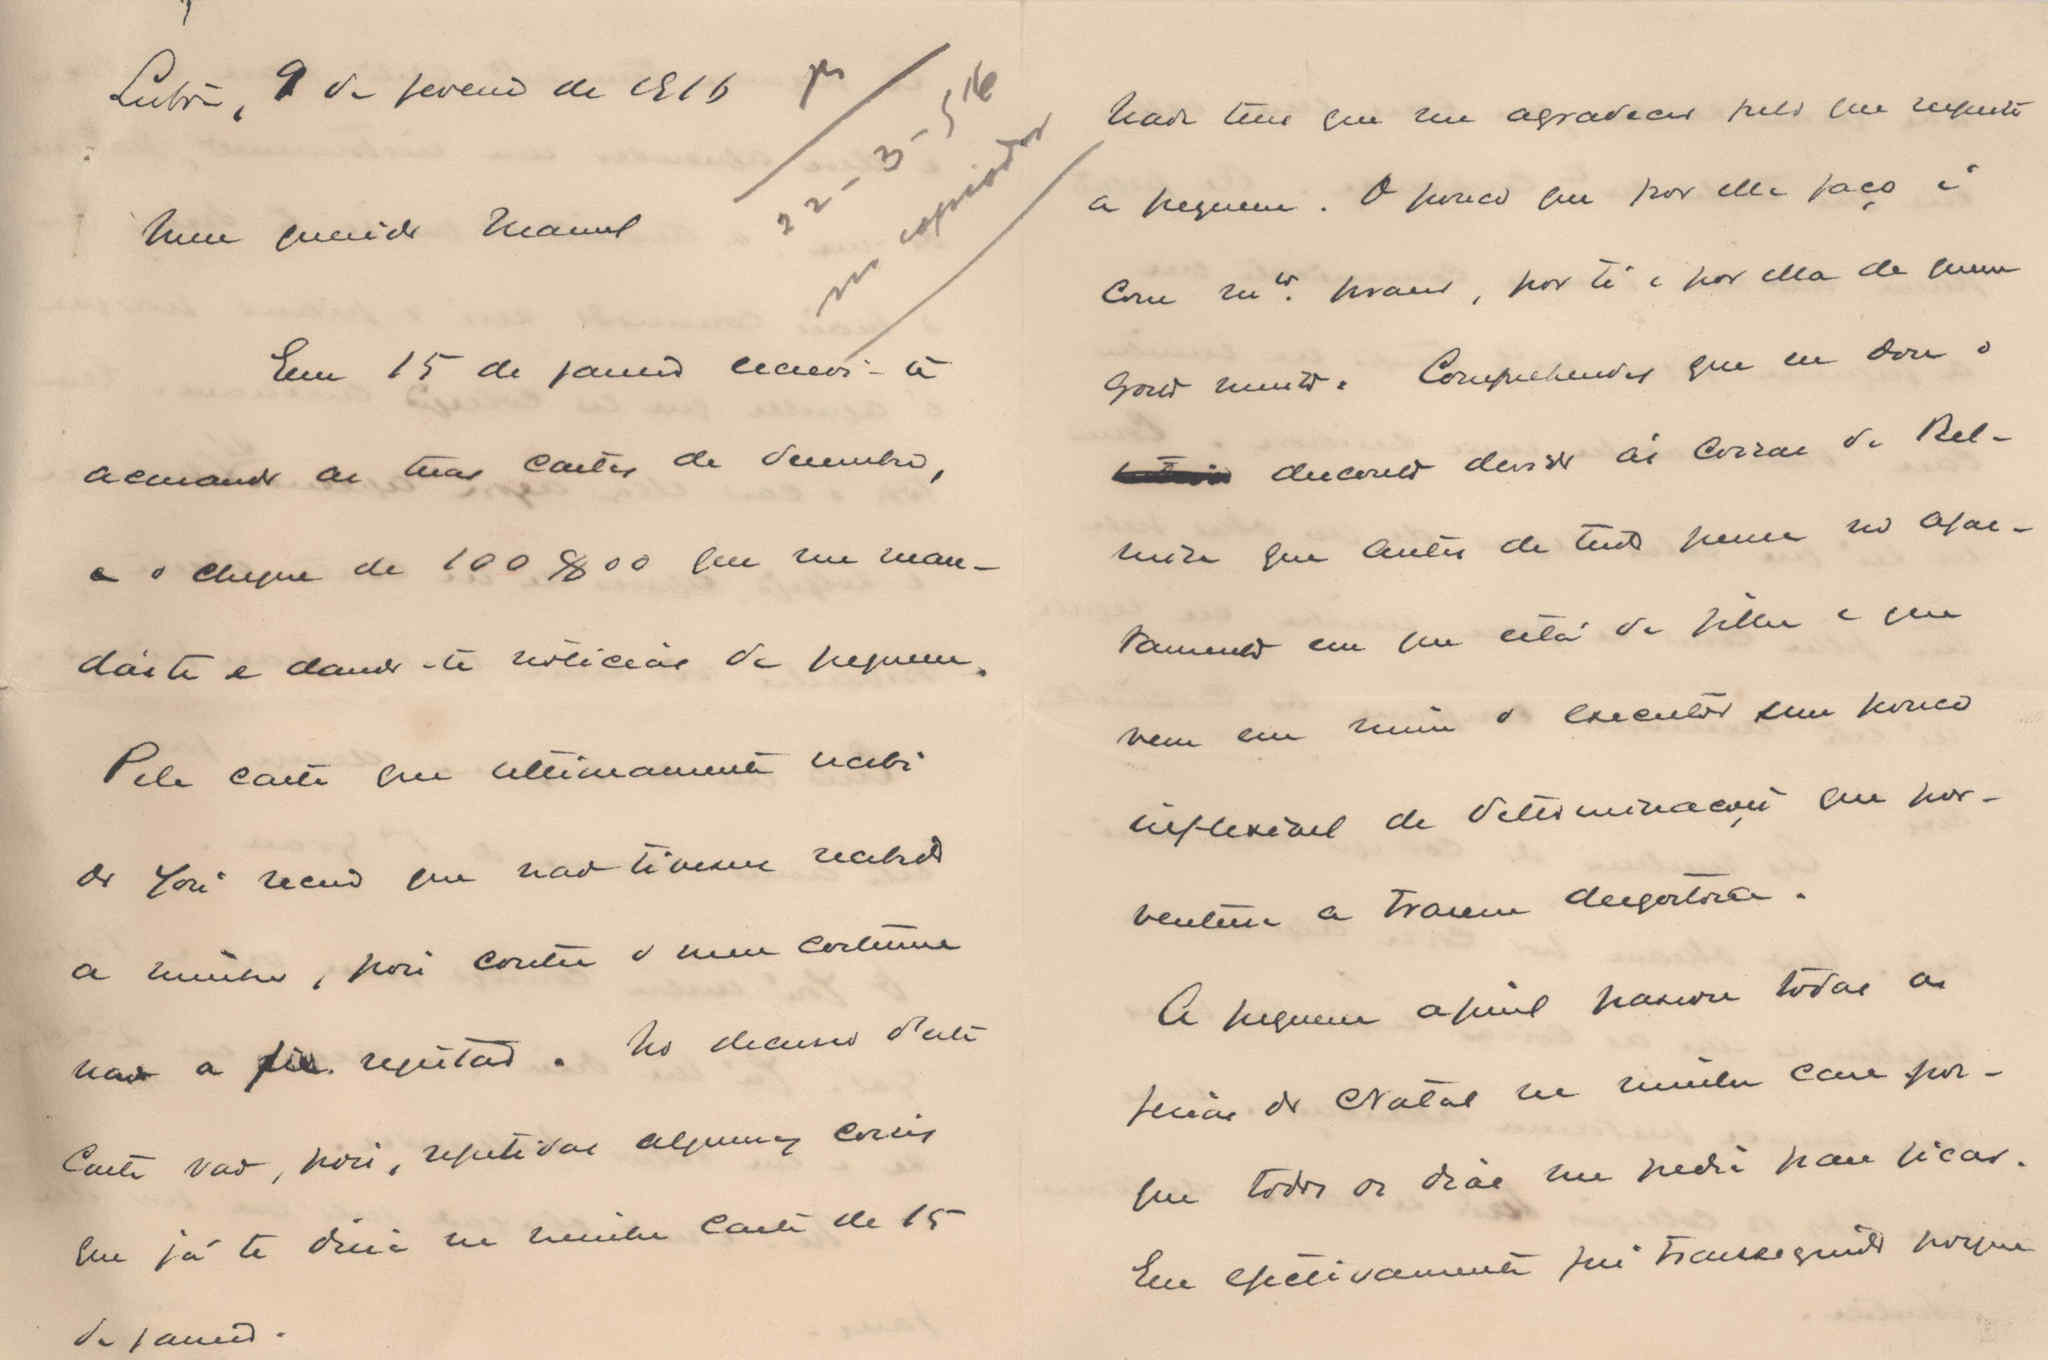 Lisboa, 9 de fevereiro de 1916
22-3-916
no copiador
Meu querido Manuel
Em 15 de janeiro escrevi-te
accusando as tuas cartas de dezembro,
e o cheque de 100$00 que me man-
daste e dando-te noticias da pequena.
Pela carta que ultimamente recebi
do José receio que não tivesses recebido
a minha, pois contra o meu costume
não a fiz registar. No decurso d'esta
carta vão, pois, repetidas algumas coisas
que já te dizia na minha carta de 15
de janeiro.
Nada tens que me agradecer pelo que respeita
a pequena. O pouco que por ella faço é
com mto. prazer, por ti e por ella de quem
gosto muito. Comprehendes que eu dou o
desconto devido ás coisas da Bel-
mira que antes de tudo pensa no afas-
tamento em que está da filha e que
vem em mim o executor um pouco
inflexivel de determinações que por-
ventura a trazem desgostosa.
A pequena afinal passou todas as
ferias do Natal na minha casa por-
que todos os dias me pedia para ficar.
Eu effectivamente fui transigindo porque